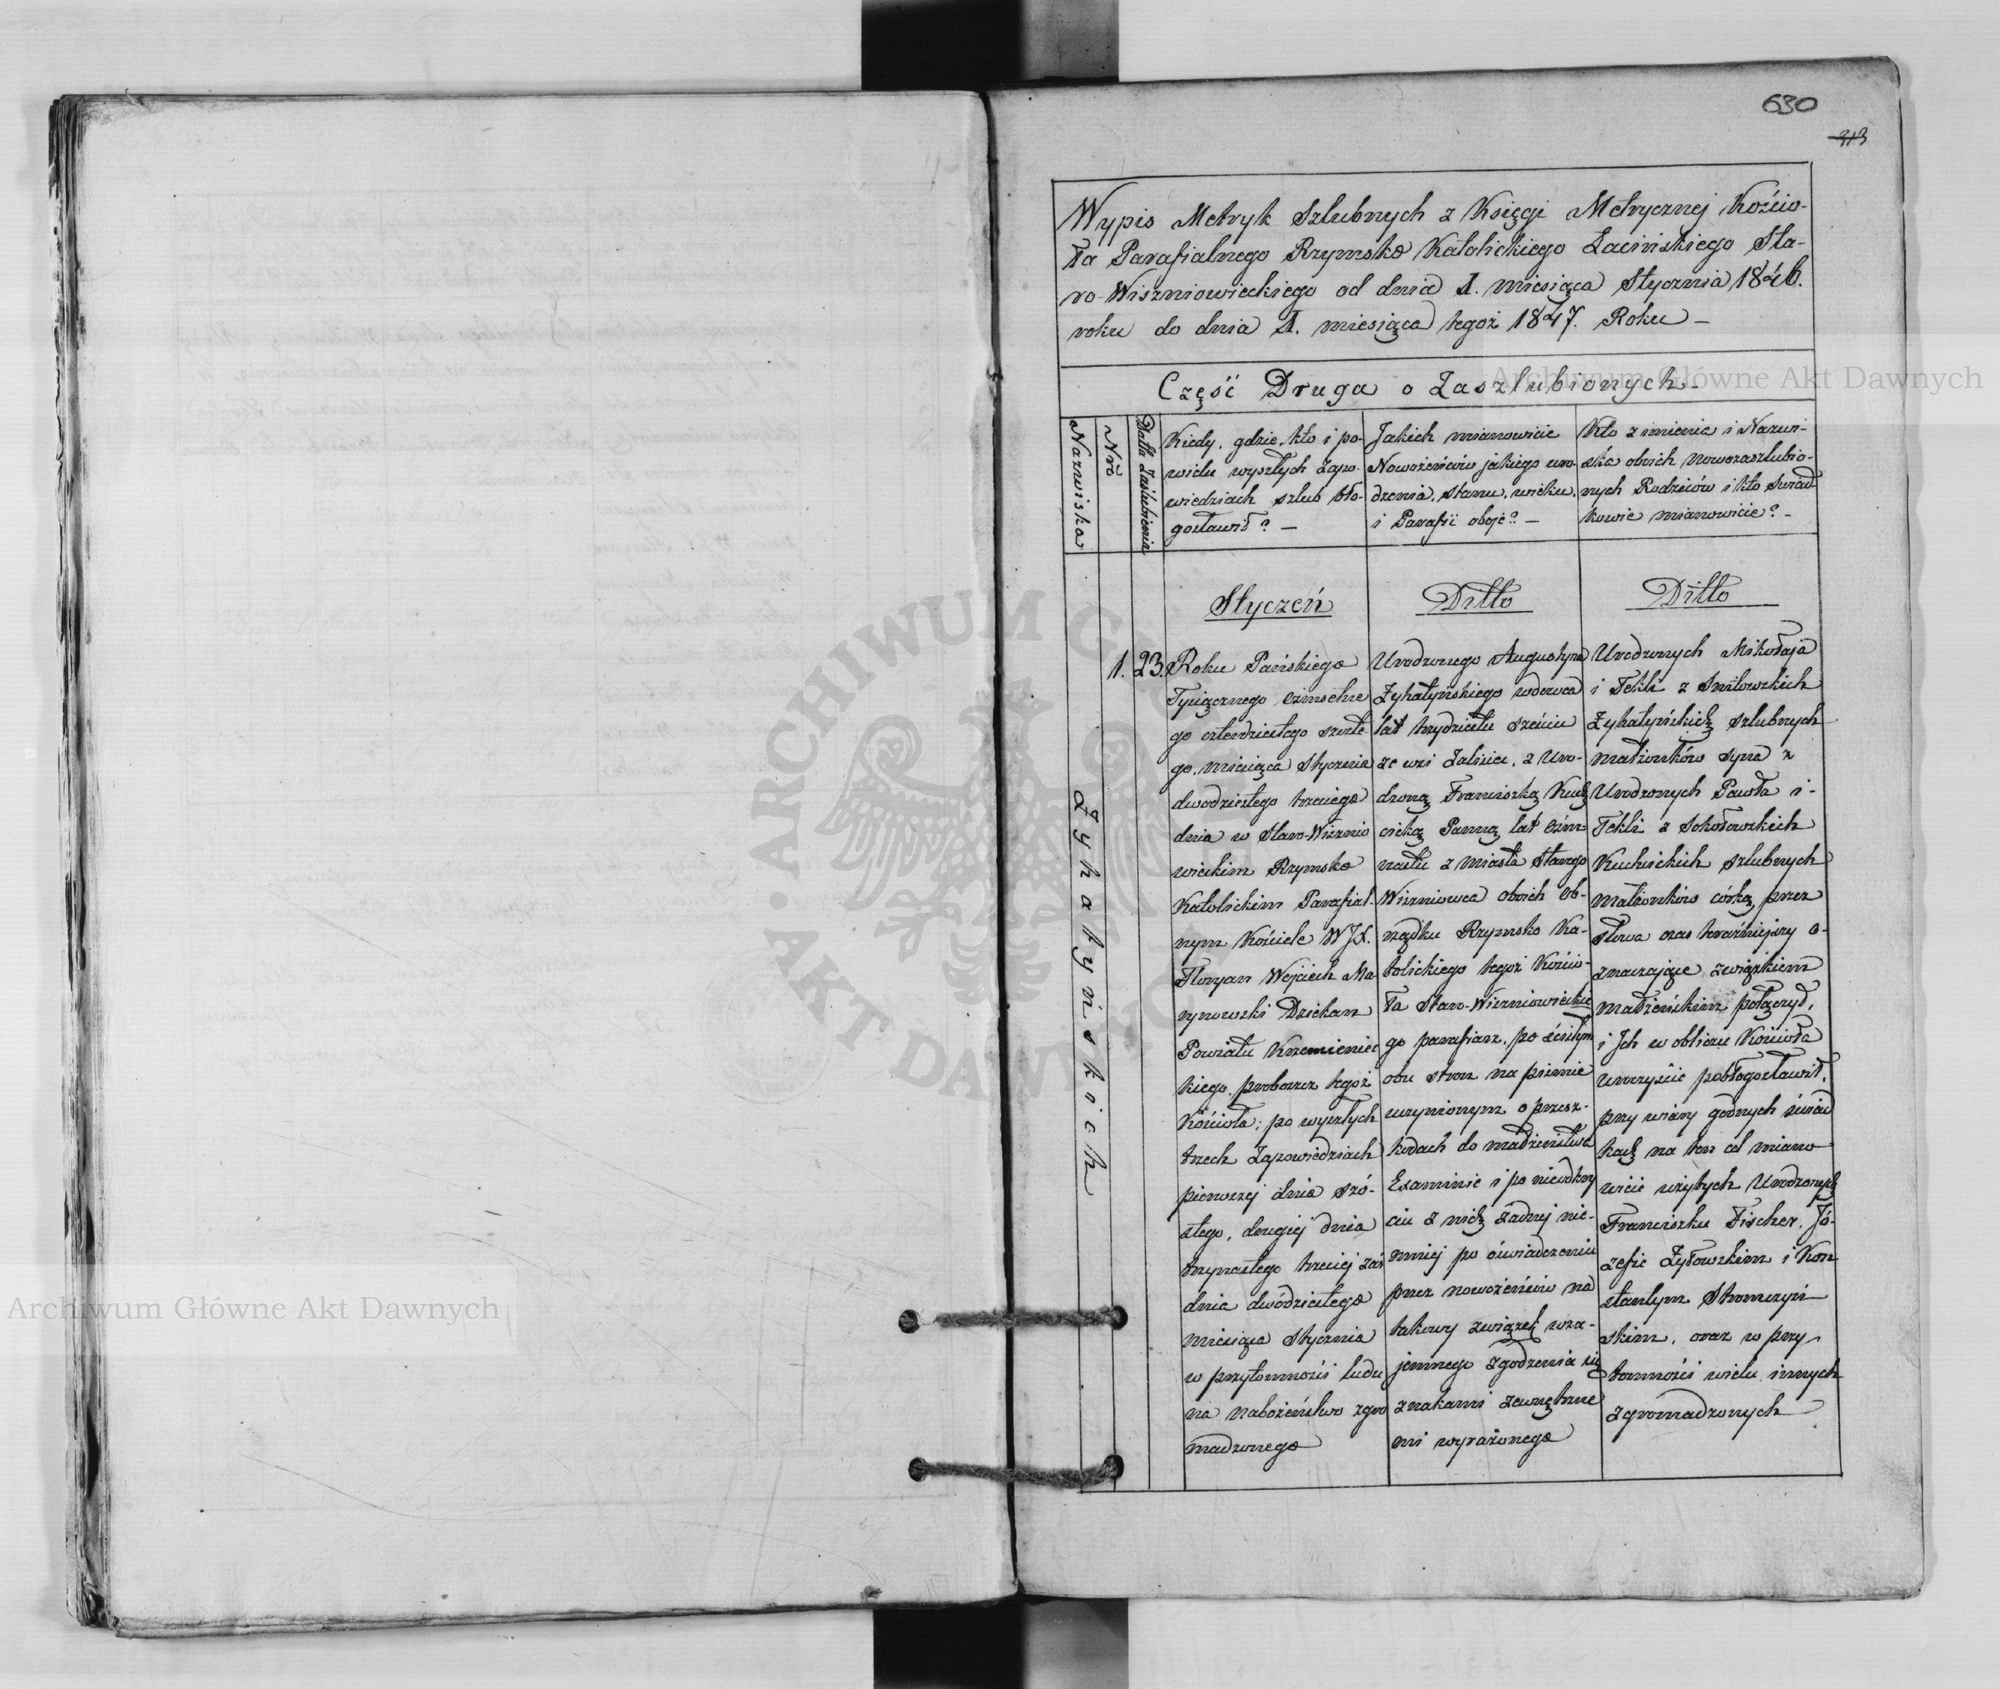 630
313
Wypis Metryk Szlubnych z Księgi Metrycznej Kościo-
ła Parafialnego Rzymsko Katolickiego Łacińskiego Sta-
ro-Wiszniowieckiego od dnia 1. miesiąca Stycznia 1846.
roku do dnia 1. miesiąca tegoż 1847. Roku —
Część Druga o Zaszlubionych —
Nazwiska
Nrō
Datta Zaślubienia
Kiedy, gdzie, kto i po
wielu wyszłych Zapo-
wiedziach szlub bło-
gosławił? —
Jakich mianowicie
Nowożeńców jakiego uro-
dzenia, stanu, wieku,
i Parafii oboje? —
Kto z imienia i Nazwi-
ska obóch Nowozaszlubio-
nych Rodziców i kto Świad-
kowie mianowicie? —
Styczeń
Ditto
Ditto
Zyhatyńskich
1.
23.
Roku Pańskiego
Tysiącznego osmsetne
go czterdziestego szóste
go, miesiąca Stycznia
dwódziestego trzeciego
dnia w Staro-Wiśnio
wieckim Rzymsko
Katolickim Parafial-
nym Kościele WJX.
Floryan Wojciech Ma
rynowski Dziekan
Powiatu Krzemieniec
kiego proboszcz tegoż
Kościoła; po wyszłych
trzech Zapowiedziach
pierwszej dnia szó-
stego, drugiej dnia
trzynastego trzeciej zaś
dnia dwódziestego
miesiąca Stycznia
w przytomności ludu
na nabożeństwo zgro
madzonego
Urodzonego Augustyna
Zyhatyńskiego wdowca
lat trzydziestu sześciu
ze wsi Zalisiec, z Uro-
dzoną Franciszką Kuch
cicką Panną lat Ośm
nastu z miasta Starego
Wiszniowca oboich Ob-
rządku Rzymsko Ka-
tolickiego tegoż Kościo-
ła Staro-Wiszniowieckie
go parafiasz. po ścisłym
obu stron na piśmie
uczynionym o przesz-
kodach do małżeństwa
Examinie i po nieodkry
ciu z nich żadnej nie-
mniej po oświadczeniu
przez nowożeńców na
takowy związek wza-
jemnego zgodzenia się
znakami zewnętrzne
mi wyrażonego
Urodzonych Mikołaja
i Tekli z Smitowskich
Zyhatyńskich szlubnych
małżonków syna z
Urodzonych Pawła i-
Tekli z Sokołowskich
Kuchcickich szlubnych
małżonków córką, przez
słowa czas teraźniejszy o-
znaczające związkiem
małżeńskim połączył,
i Ich w obliczu Kościoła
uroczyście pobłogosławił,
przy wiary godnych świad
kach na ten cel miano-
wicie użytych Urodzonych
Franciszku Fischer, Jó-
zefie Żyłowskim i Kon
stantym Stromczyń
skim, oraz w przy-
tomności wielu innych
zgromadzonych
Archiwum Główne Akt Dawnych
Archiwum Główne Akt Dawnych